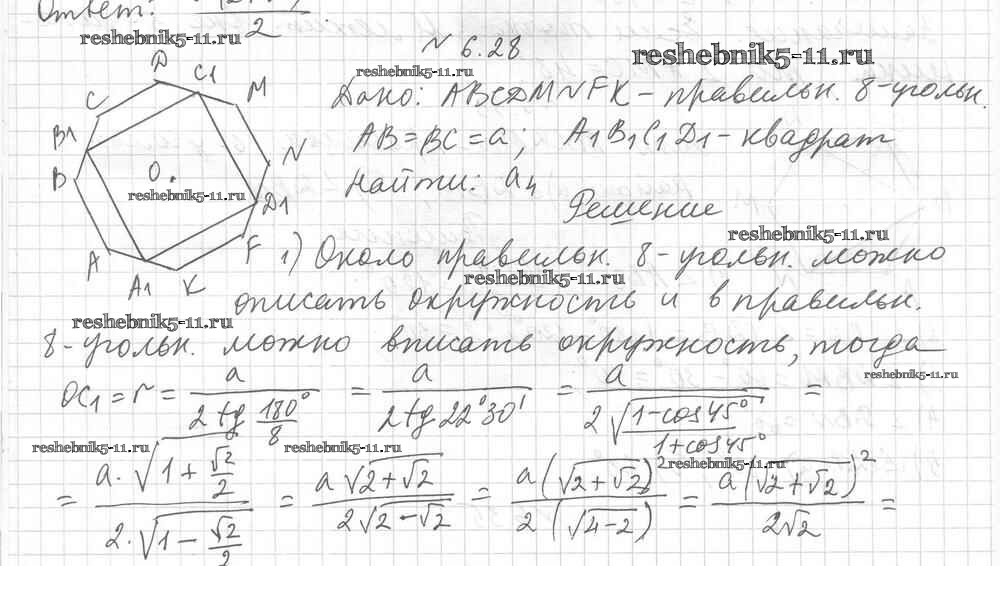 Ответ:
2
N 6.28
reshebnik5-11.ru
reshebnik5-11.ru
reshebnik5-11.ru
Дано: ABCDMNFK – правильн. 8-угольн.
AB = BC = a; A1B1C1D1 – квадрат
Найти: a4
D C1 M
C
B1
N
B
O
reshebnik5-11.ru
D1
A
F
A1 K
Решение
reshebnik5-11.ru
1) Около правильн. 8-угольн. можно
reshebnik5-11.ru
описать окружность и в правильн.
reshebnik5-11.ru
8-угольн. можно вписать окружность, тогда
reshebnik5-11.ru
OC1 = r = a / (2 tg 180°/8) = a / (2 tg 22°30') = a / (2 √((1-cos45°)/(1+cos45°))) =
reshebnik5-11.ru
reshebnik5-11.ru
reshebnik5-11.ru
= (a·√(1+√2/2)) / (2·√(1-√2/2)) = (a√(2+√2)) / (2√(2-√2)) = (a(√(2+√2))²) / (2(√(4-2))) = (a(√(2+√2))²) / (2√2) =